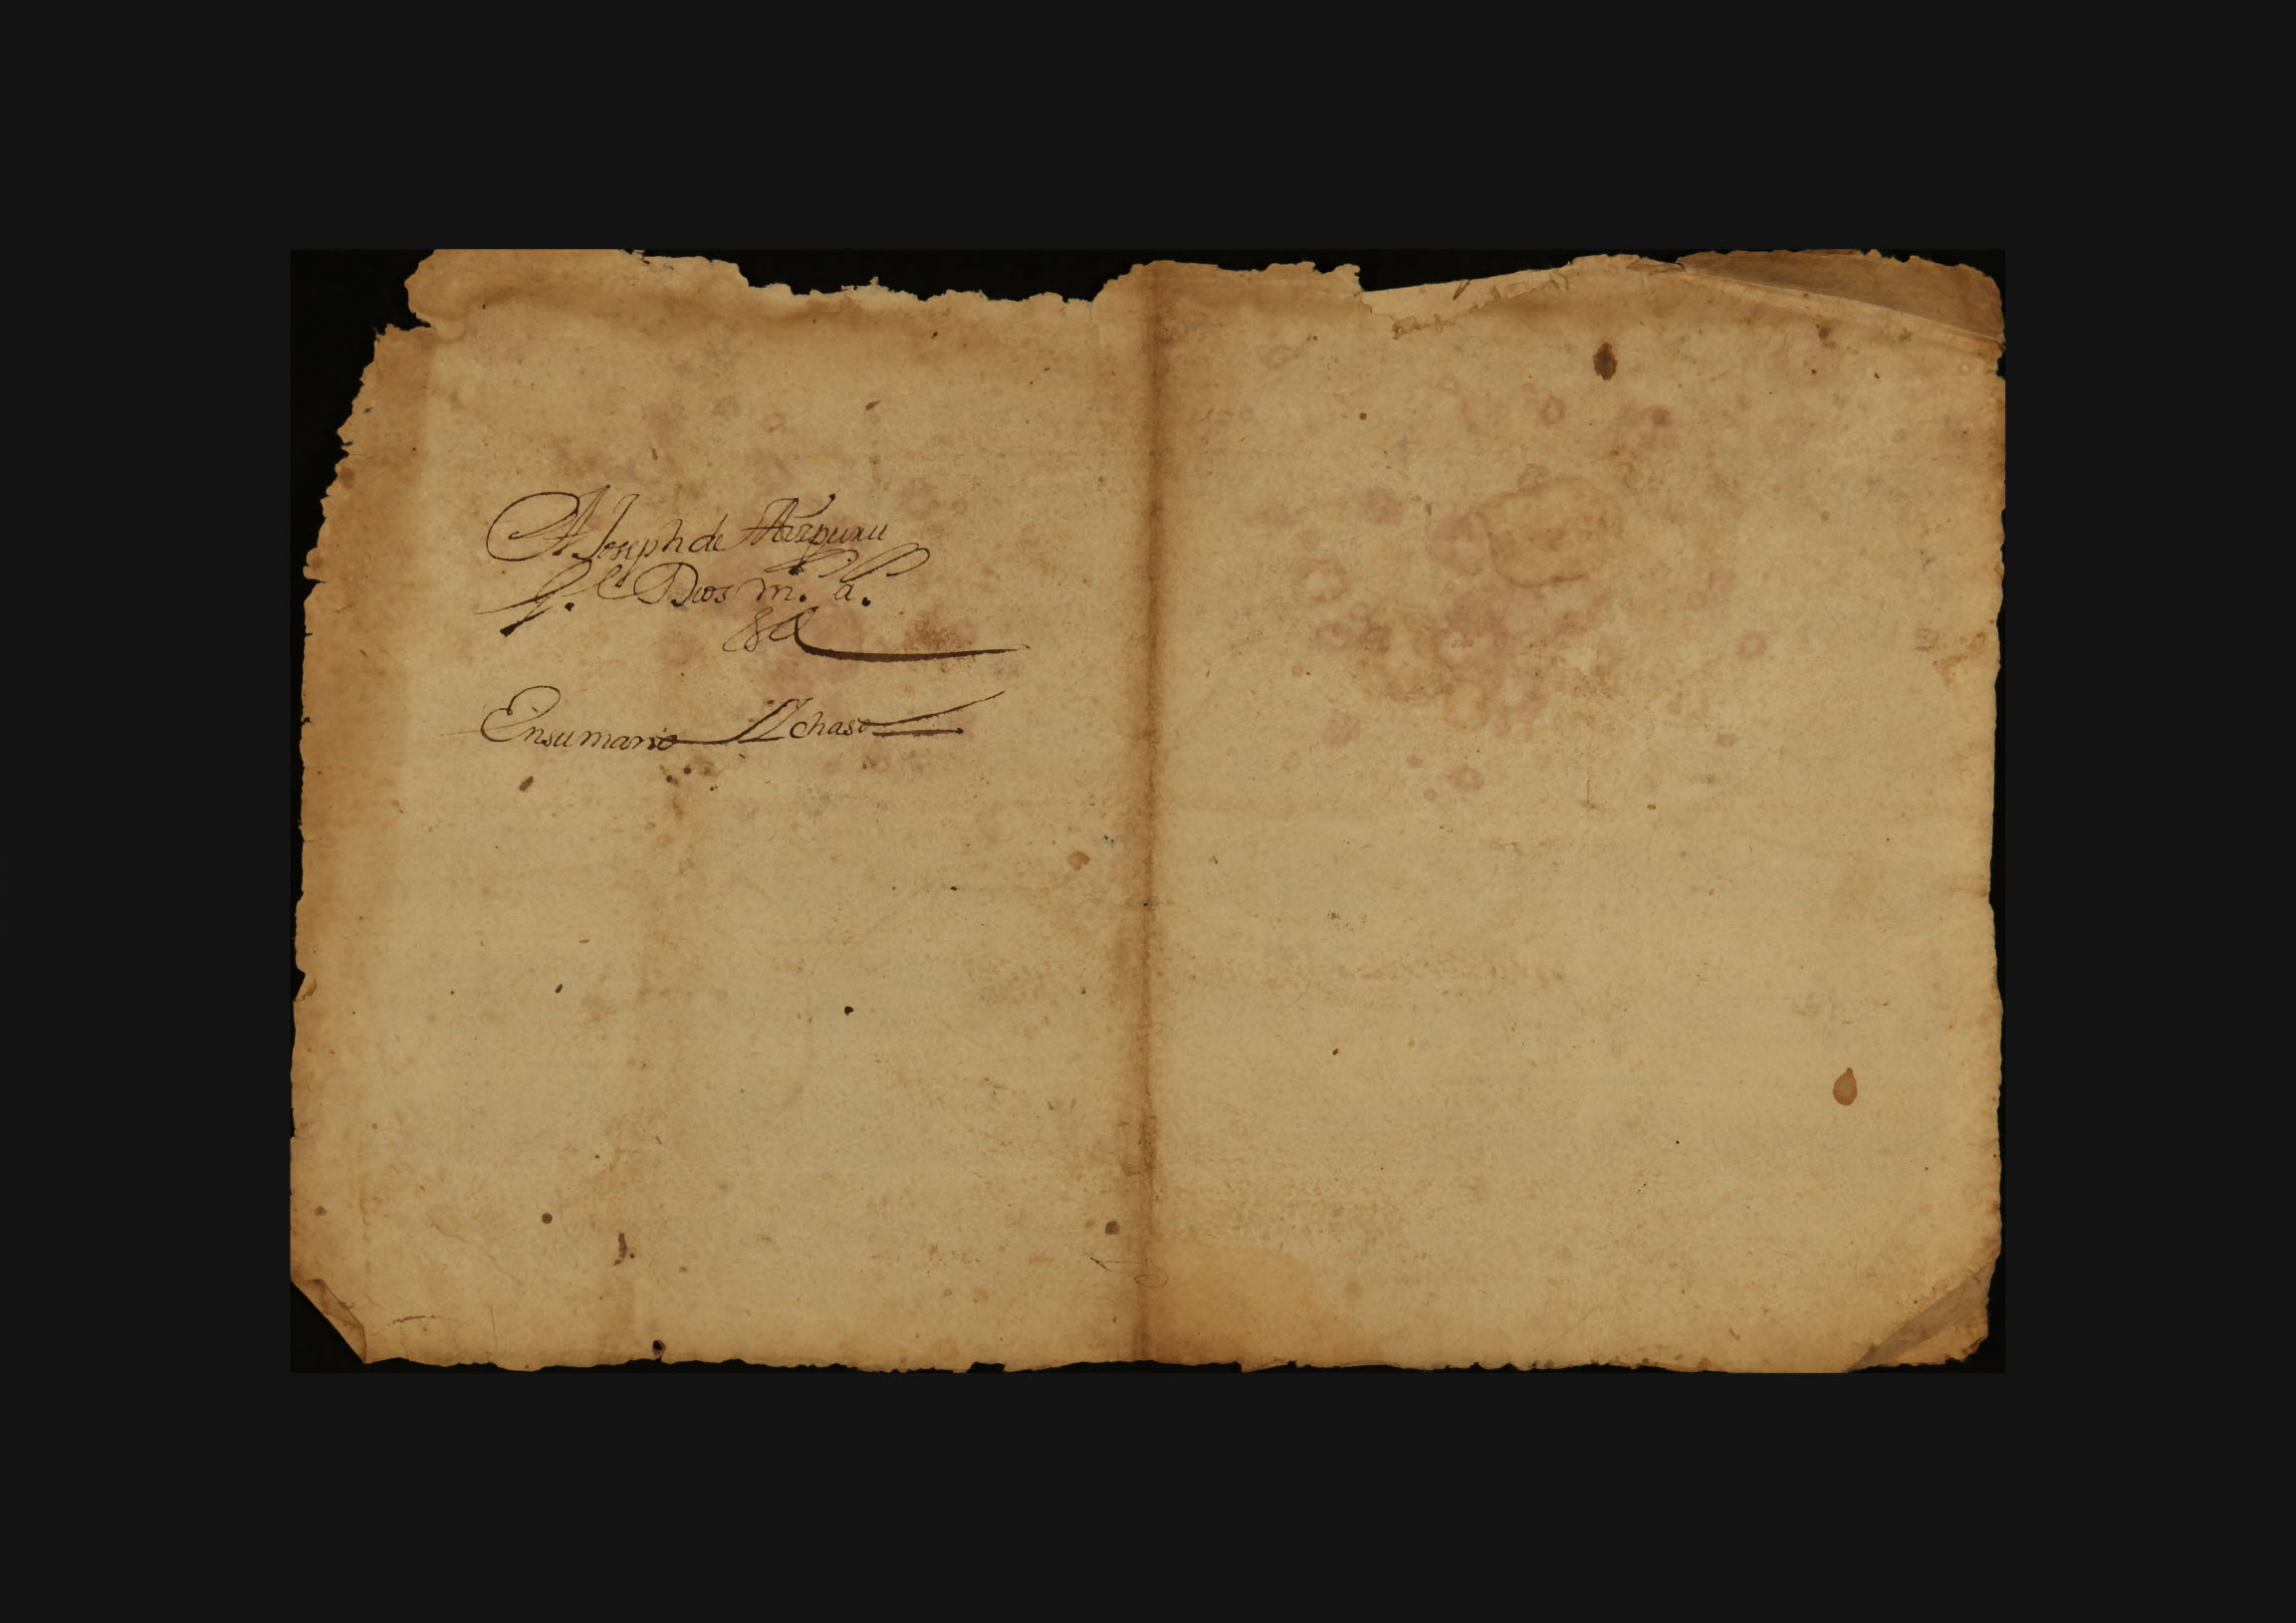 A Joseph de Aizpuru
g.e Dios m. a.
&a
En su mano Lchaso